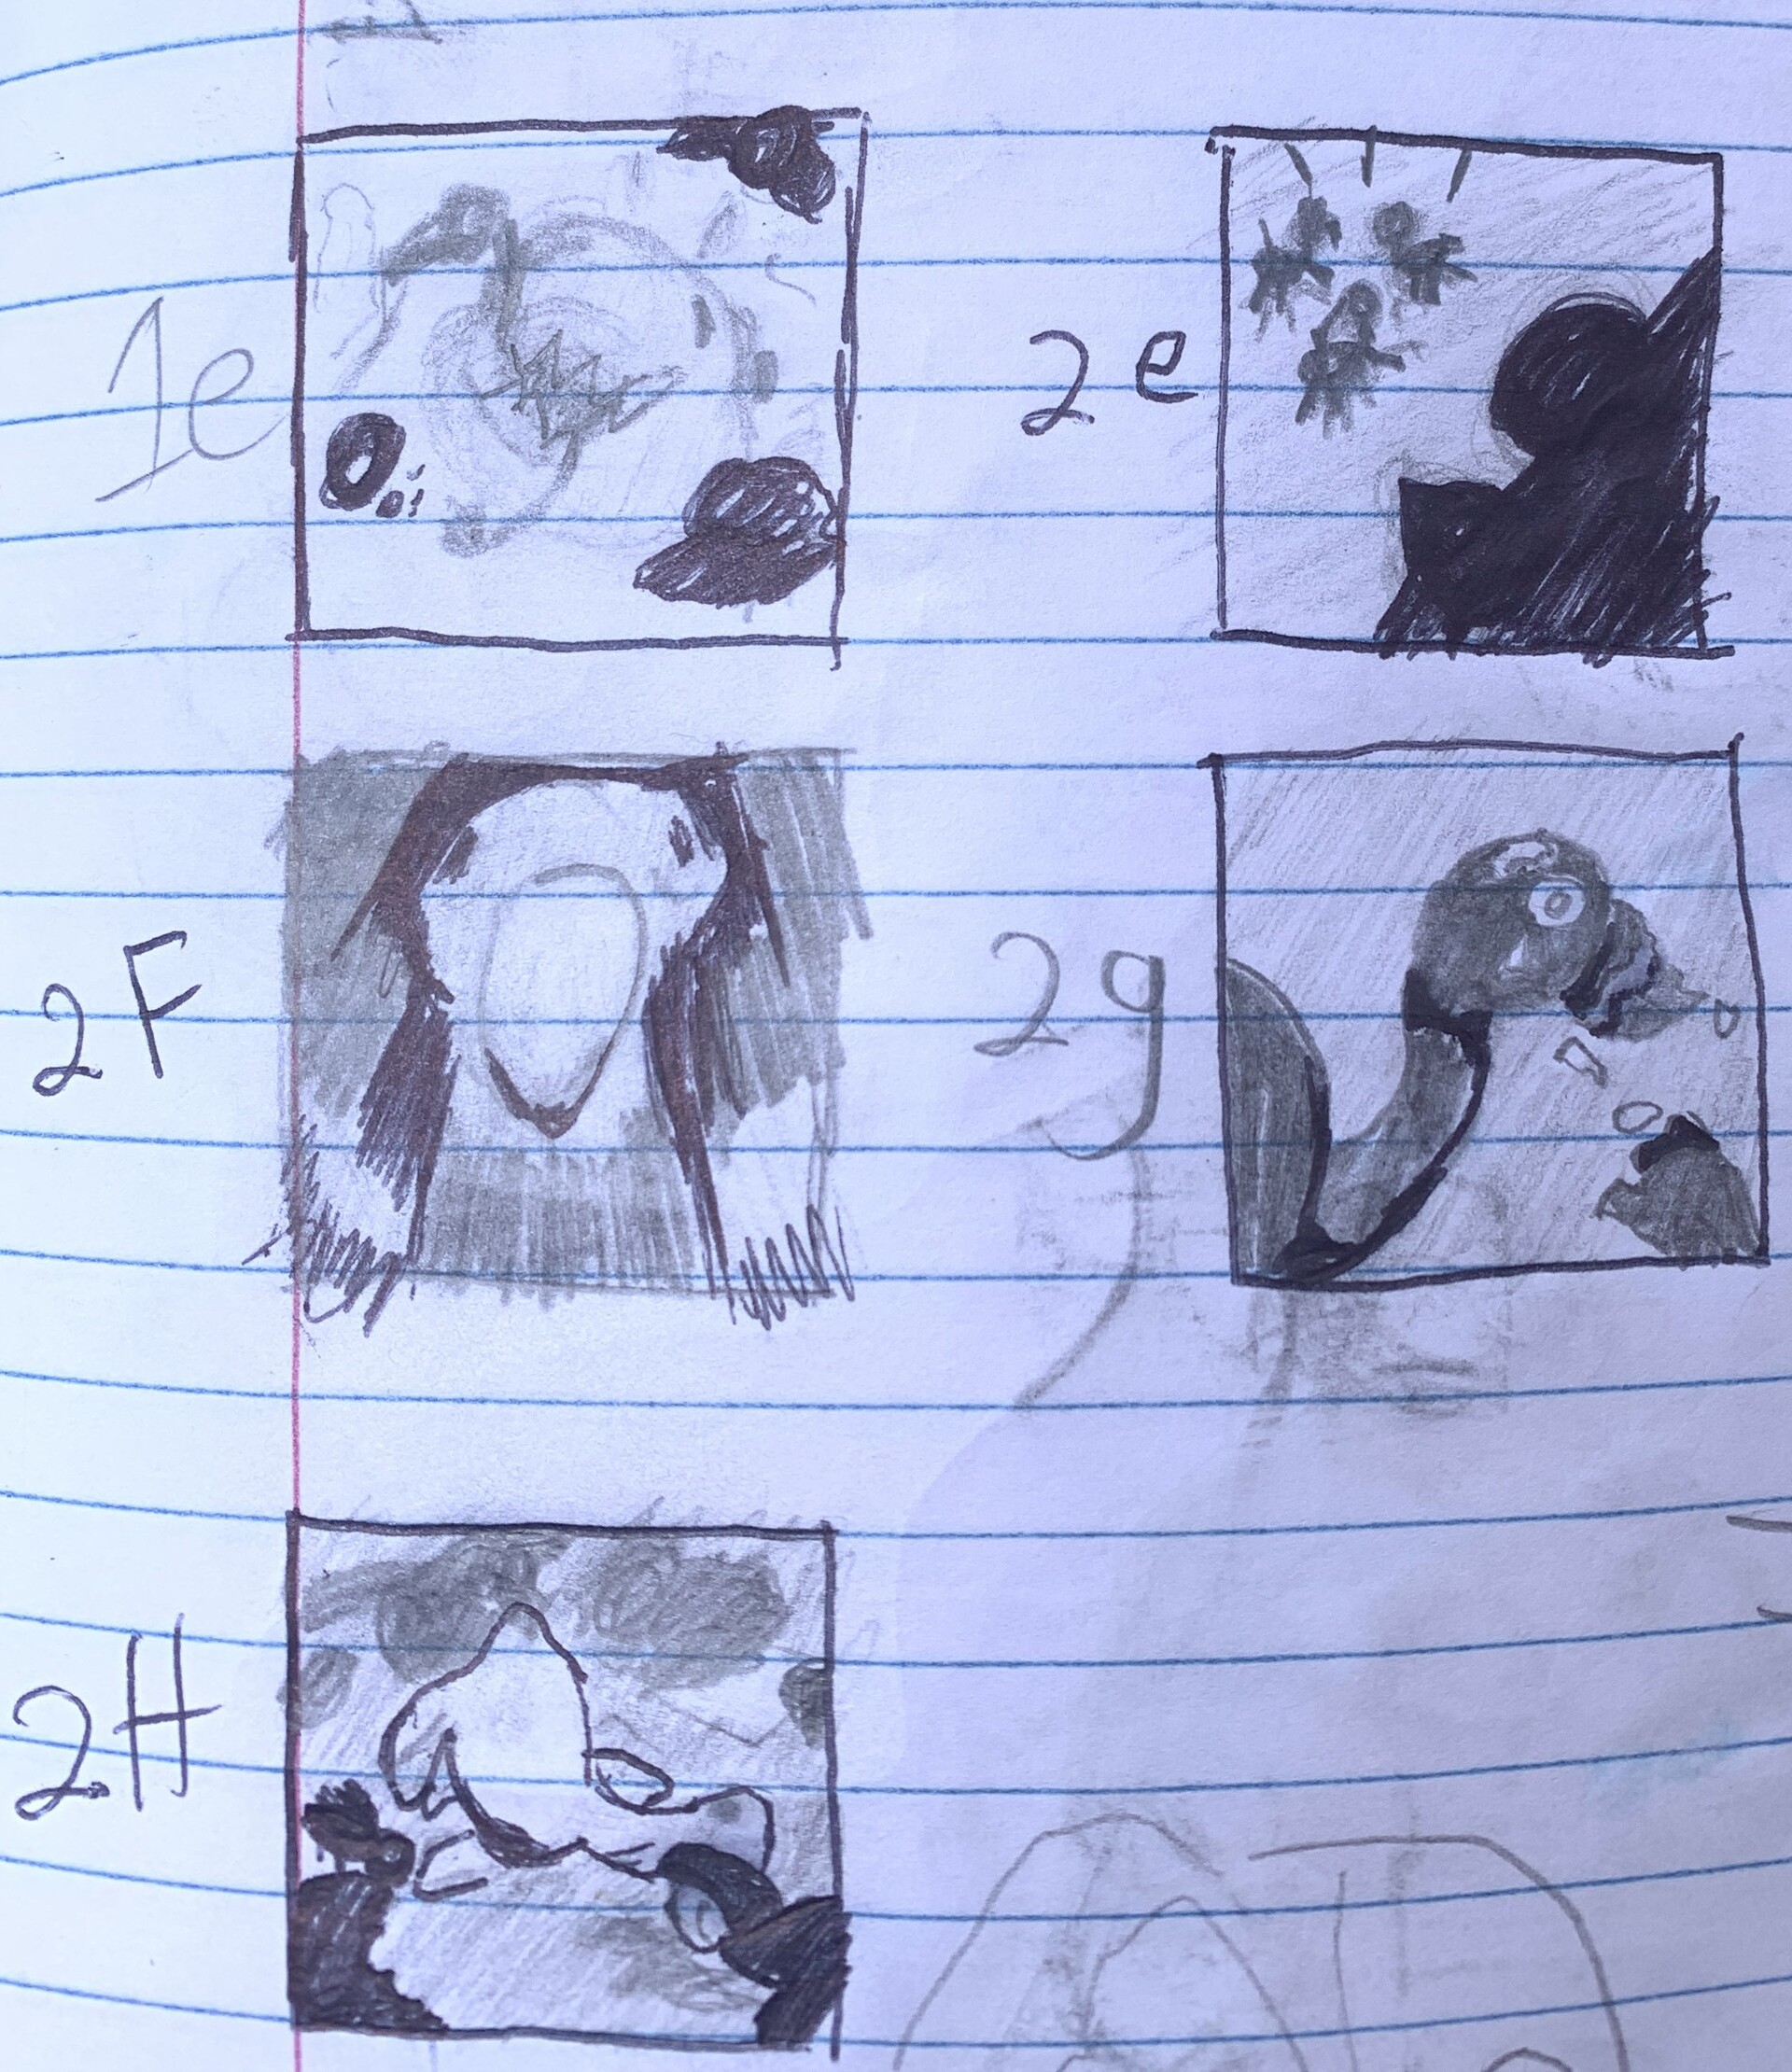 1e
2e
2F
2g
2H